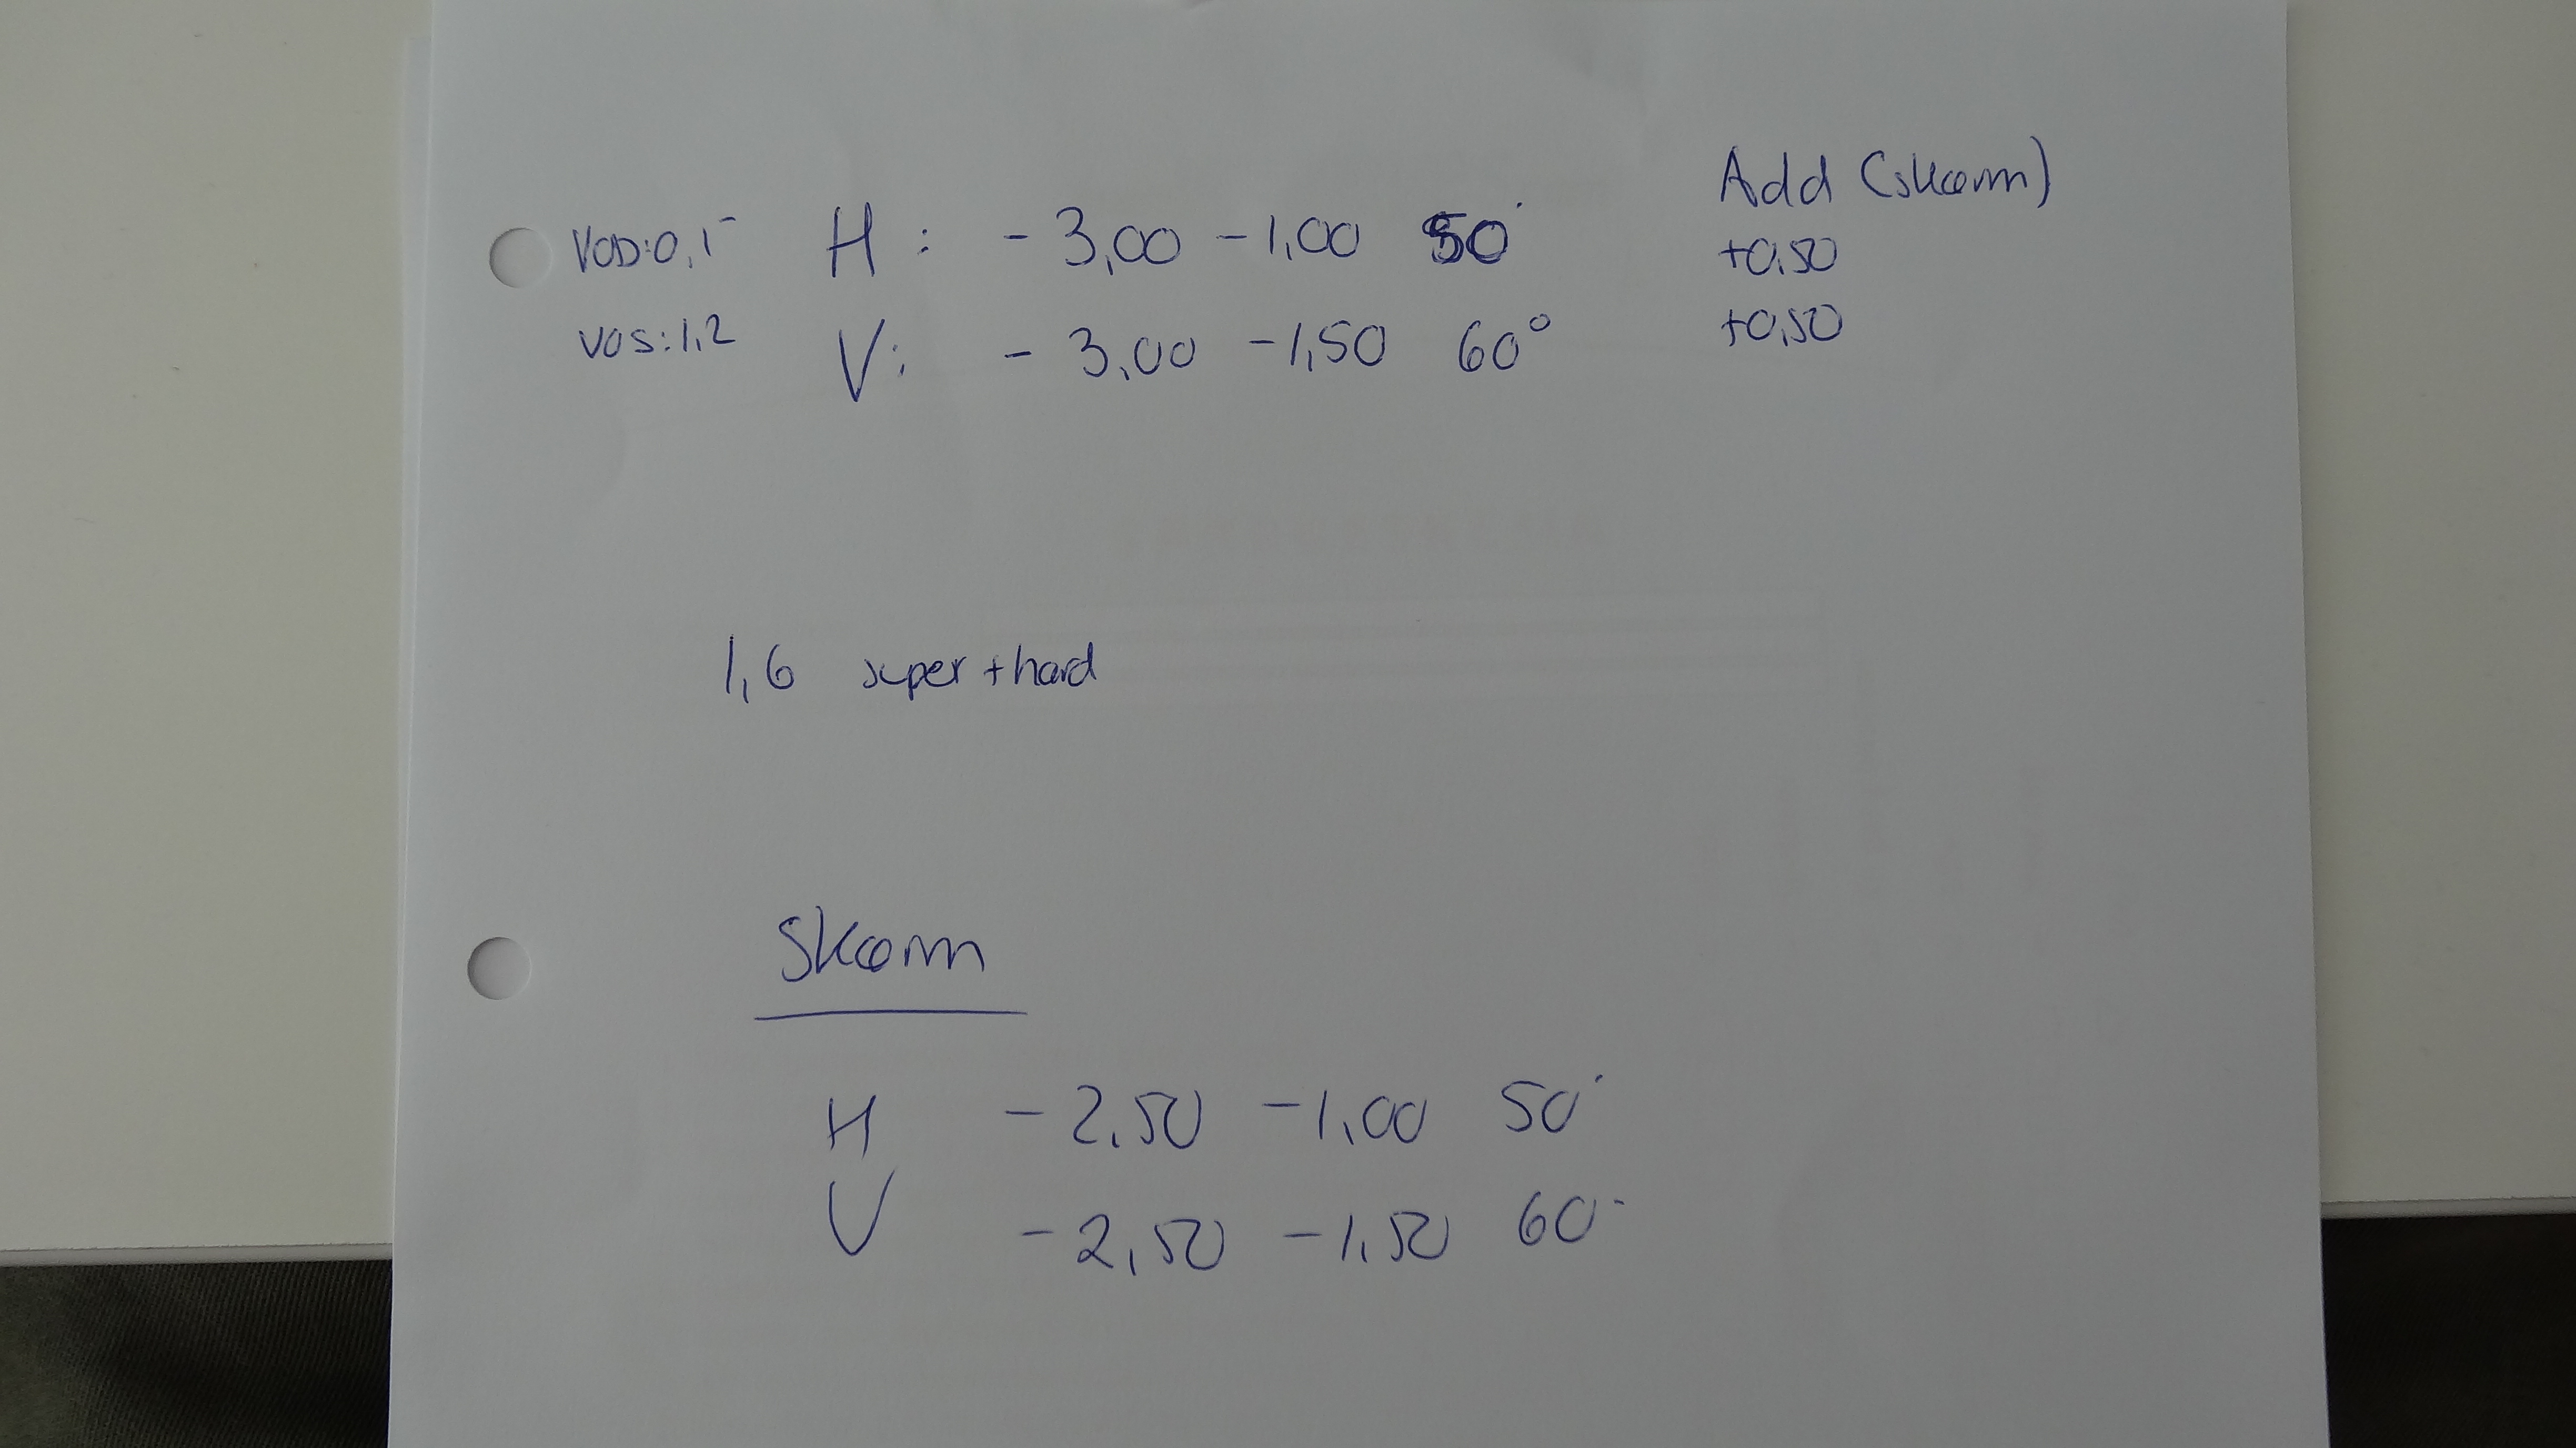 Add (skærm)
VOD: 0,1 H: -3,00 -1,00 50° +0,50
VOS: 1,2 V: -3,00 -1,50 60° +0,50
1,6 super + hard
Skærm
H -2,50 -1,00 50°
V -2,50 -1,50 60°